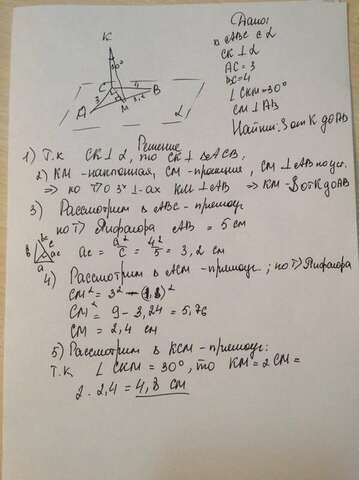 K
30°
C
4
B
3
3,2
A
M
α
Дано:
△ ABC ∈ α
CK ⊥ α
AC = 3
BC = 4
∠ CKM = 30°
CM ⊥ AB
Найти: S от K до AB
Решение
1) Т.к CK ⊥ α, то CK ⊥ △ACB;
2) KM - наклонная, CM - проекция, CM ⊥ AB по усл.
⇒ по T о 3х ⊥-ах KM ⊥ AB ⇒ KM - S от K до AB
3) Рассмотрим △ ABC - прямоуг
по T) Пифагора AB = 5 см
b
c
ac
a
ac = 9²/c = 4²/5 = 3,2 см
4) Рассмотрим △ ACM - прямоуг; по T) Пифагора
CM² = 3² - (1,8)²
CM² = 9 - 3,24 = 5,76
CM = 2,4 см
5) Рассмотрим △ KCM - прямоуг:
Т.к. ∠ CKM = 30°, то KM = 2 CM =
2 · 2,4 = 4,8 см